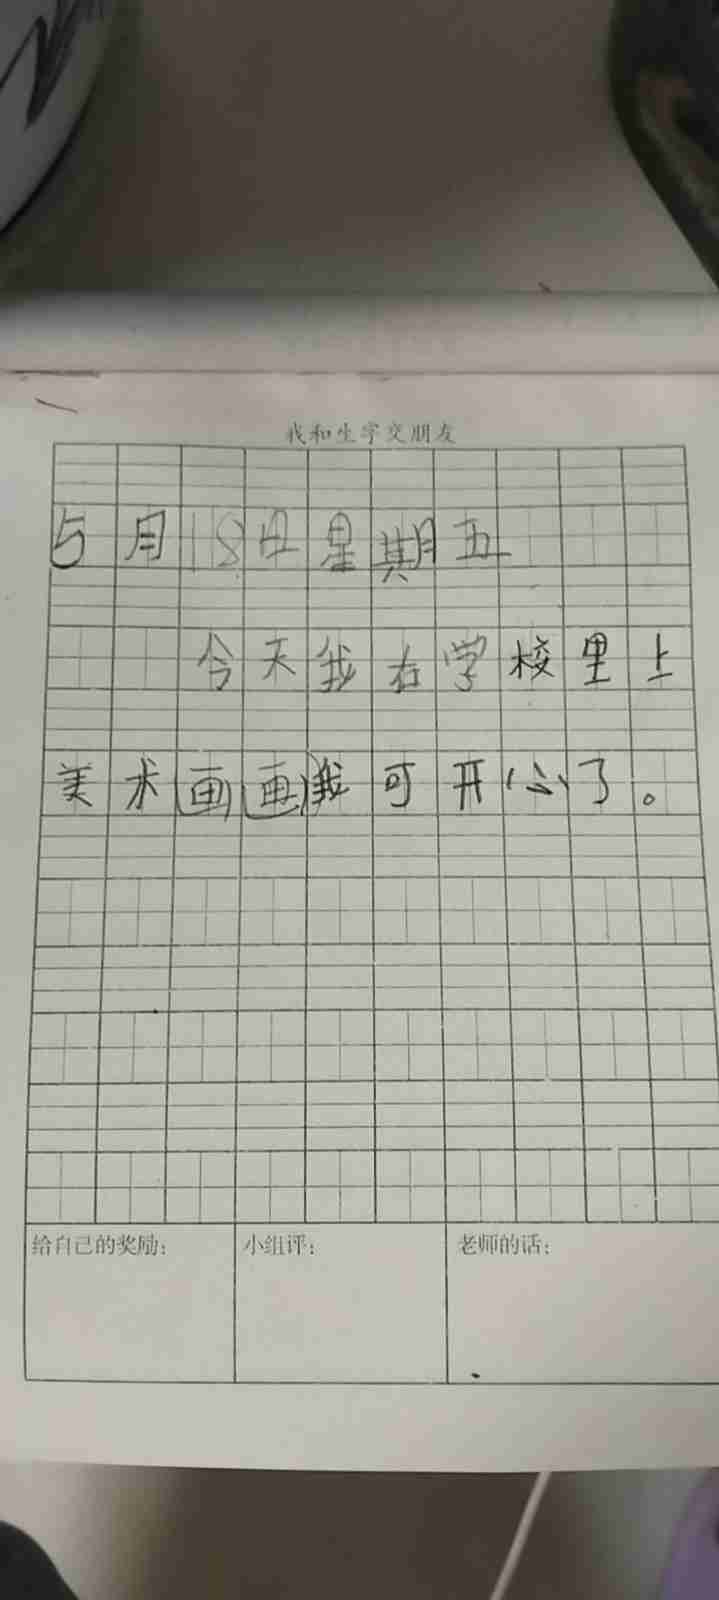 我和生字交朋友
5月18日星期五
今天我右学校里上
美术画画我可开心了。
给自己的奖励： 小组评： 老师的话：